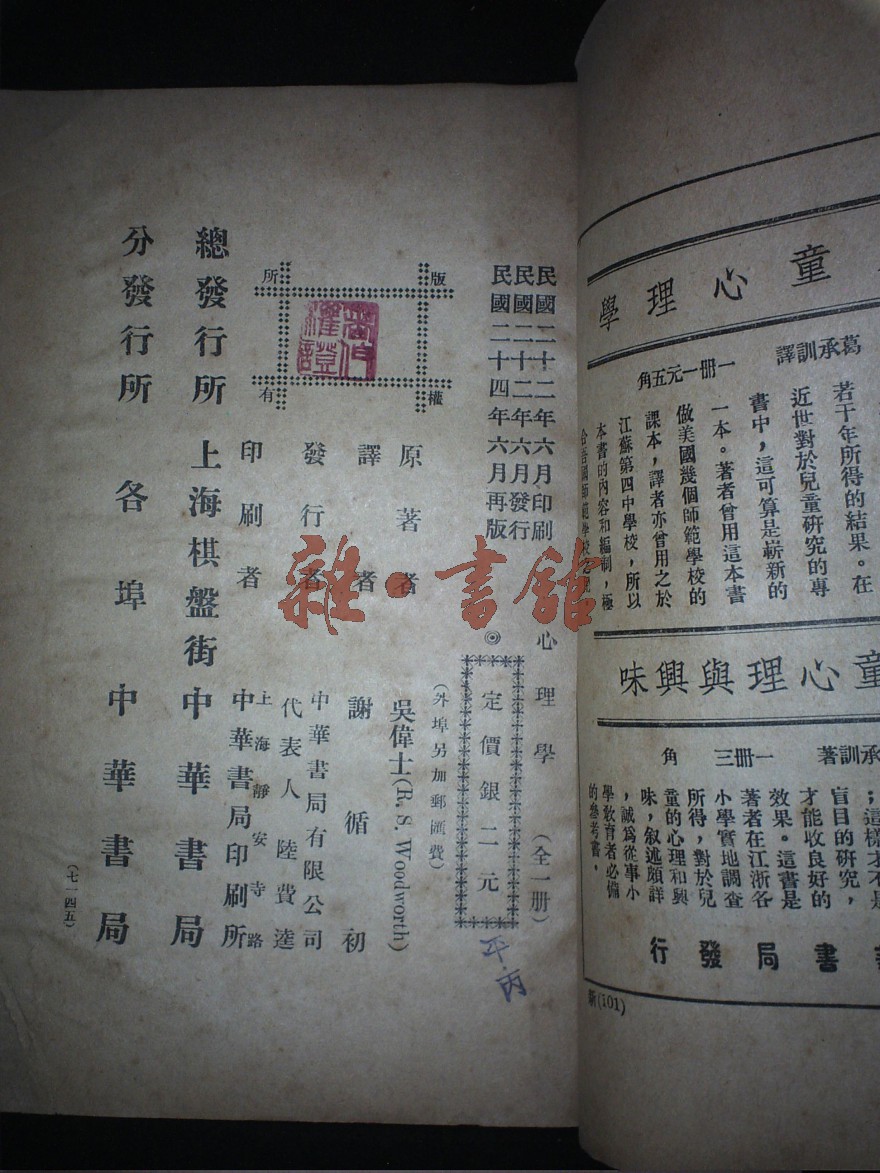 民國二十二年六月印刷
民國二十二年六月發行
民國二十四年六月再版
心理學(全一册)
◎
定價銀二元
(外埠另加郵匯費)
版權所有
原著者 吳偉士(R. S. Woodworth)
譯者 謝循初
發行者 中華書局有限公司
代表人 陸費逵
印刷者 上海靜安寺路
中華書局印刷所
總發行所 上海棋盤街 中華書局
分發行所 各埠 中華書局
(七一四五)
平.丙
雜·書館
童心理學
葛承訓譯 一册一元五角
若干年所得的結果。在
近世對於兒童研究的專
書中,這可算是嶄新的
一本。著者曾用這本書
做美國幾個師範學校的
課本,譯者亦曾用之於
江蘇第四中學校,所以
本書的內容和編制,極
童心理與興味
承訓著 一册三角
;這樣才不是
盲目的研究,
才能收良好的
效果。這書是
著者在江浙各
小學實地調查
所得,對於兒
童的心理和興
味,叙述頗詳
,誠爲從事小
學教育者必備
的參考書。
書局發行
新(101)